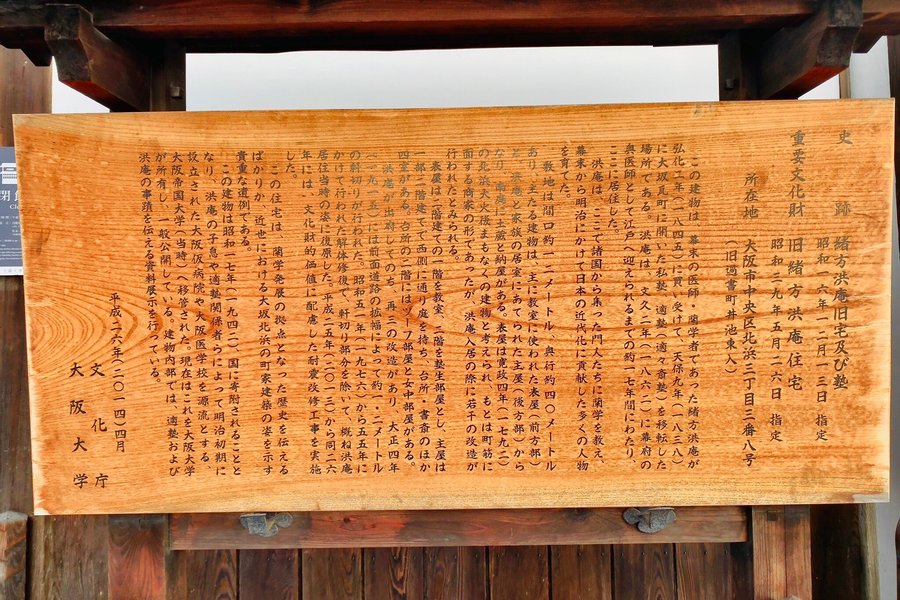 史跡 緒方洪庵旧宅及び塾
昭和一六年一二月一三日 指定
重要文化財 旧緒方洪庵住宅
昭和三九年五月二六日 指定
所在地 大阪市中央区北浜三丁目三番八号
(旧過書町井池東入)
この建物は、幕末の医師・蘭学者であった緒方洪庵が
弘化二年(一八四五)に買い受けて、天保九年(一八三八)
に大坂瓦町に開いた私塾・適塾(適々斎塾)を移転した
場所である。洪庵は、文久二年(一八六二)に幕府の
奥医師として江戸へ迎えられるまでの約一七年間にわたり、
ここに居住した。
洪庵は、ここで諸国から集った門人たちに蘭学を教え、
幕末から明治にかけて日本の近代化に貢献した多くの人物
を育てた。
敷地は間口約一二メートル、奥行約四〇メートル
あり、主たる建物は、主に教室に使われた表屋(前方部)
と、洪庵と家族の居室にあてられた主屋(後方部)から
なり、南庭に土蔵と納屋がある。表屋は寛政四年(一七九二)
の北浜の大火後まもなくの建物と考えられ、もとは町筋に
面する商家の形であったが、洪庵入居の際に若干の改造が
行われたとみられる。
表屋は二階建ての一階を教室、二階を塾生部屋とし、主屋は
一部二階建てで西側に通り庭を持ち、台所・書斎のほか
四室がある。台所の二階にはヅーフ部屋と女中部屋がある。
洪庵が出府してのち、再三の改造があり、大正四年
(一九一五)には前面道路の拡幅によって約一・二メートル
の軒切りが行われた。昭和五一年(一九七六)から五五年に
かけて行われた解体修復で、軒切り部分を除いて、概ね洪庵
居住当時の姿に復原した。平成二五年(二〇一三)から同二六
年には、文化財的価値に配慮した耐震改修工事を実施
した。
この住宅は、蘭学発展の拠点となった歴史を伝える
ばかりか、近世における大坂北浜の町家建築の姿を示す
貴重な遺例である。
この建物は昭和一七年(一九四二)、国に寄附されることと
なり、洪庵の子息や適塾関係者らによって明治初期に
設立された大阪仮病院や大阪医学校を源流とする、
大阪帝国大学(当時)へ移管された。現在はこれを大阪大学
が所有し、一般公開している。建物内部では、適塾および
洪庵の事蹟を伝える資料展示を行っている。
平成二六年(二〇一四)四月
文化庁
大阪大学